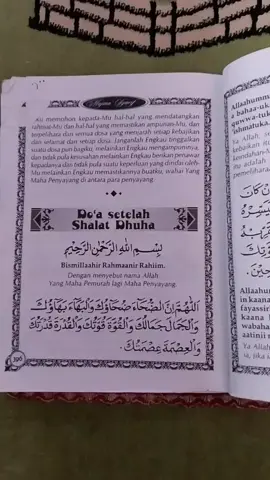 Majmu Syarif
Aku memohon kepada-Mu hal-hal yang mendatangkan
rahmat-Mu dan hal-hal yang memastikan ampunan-Mu, dan
terpelihara dari semua dosa yang meraih setiap kebajikan
dan selamat dari setiap dosa. Janganlah Engkau tinggalkan
suatu dosa pun bagiku, melainkan Engkau mengampuninya,
dan tidak pula kesusahan melainkan Engkau berikan penawar
kepadanya dan tidak pula suatu keperluan yang diridhai oleh
Mu melainkan Engkau memudahkannya buatku, wahai Yang
Maha Penyayang di antara para penyayang.
Do'a setelah
Shalat Dhuha
بِسْمِ اللهِ الرَّحْمٰنِ الرَّحِيْمِ
Bismillaahir Rahmaanir Rahiim.
Dengan menyebut nama Allah
Yang Maha Pemurah lagi Maha Penyayang.
اَللّٰهُمَّ اِنَّ الضُّحَآءَ ضُحَاؤُكَ وَالْبَهَآءَ بَهَاؤُكَ
وَالْجَمَالَ جَمَالُكَ وَالْقُوَّةَ قُوَّتُكَ وَالْقُدْرَةَ قُدْرَتُكَ
وَالْعِصْمَةَ عِصْمَتُكَ
196
Allaahumm
a bahaa-uk
quwwa-tuk
'ishmatuka
Ya Allah
pemelihara
Allaahumm
in kaana
fayassir
kaana
wabaha
aatinii
Ya Alla